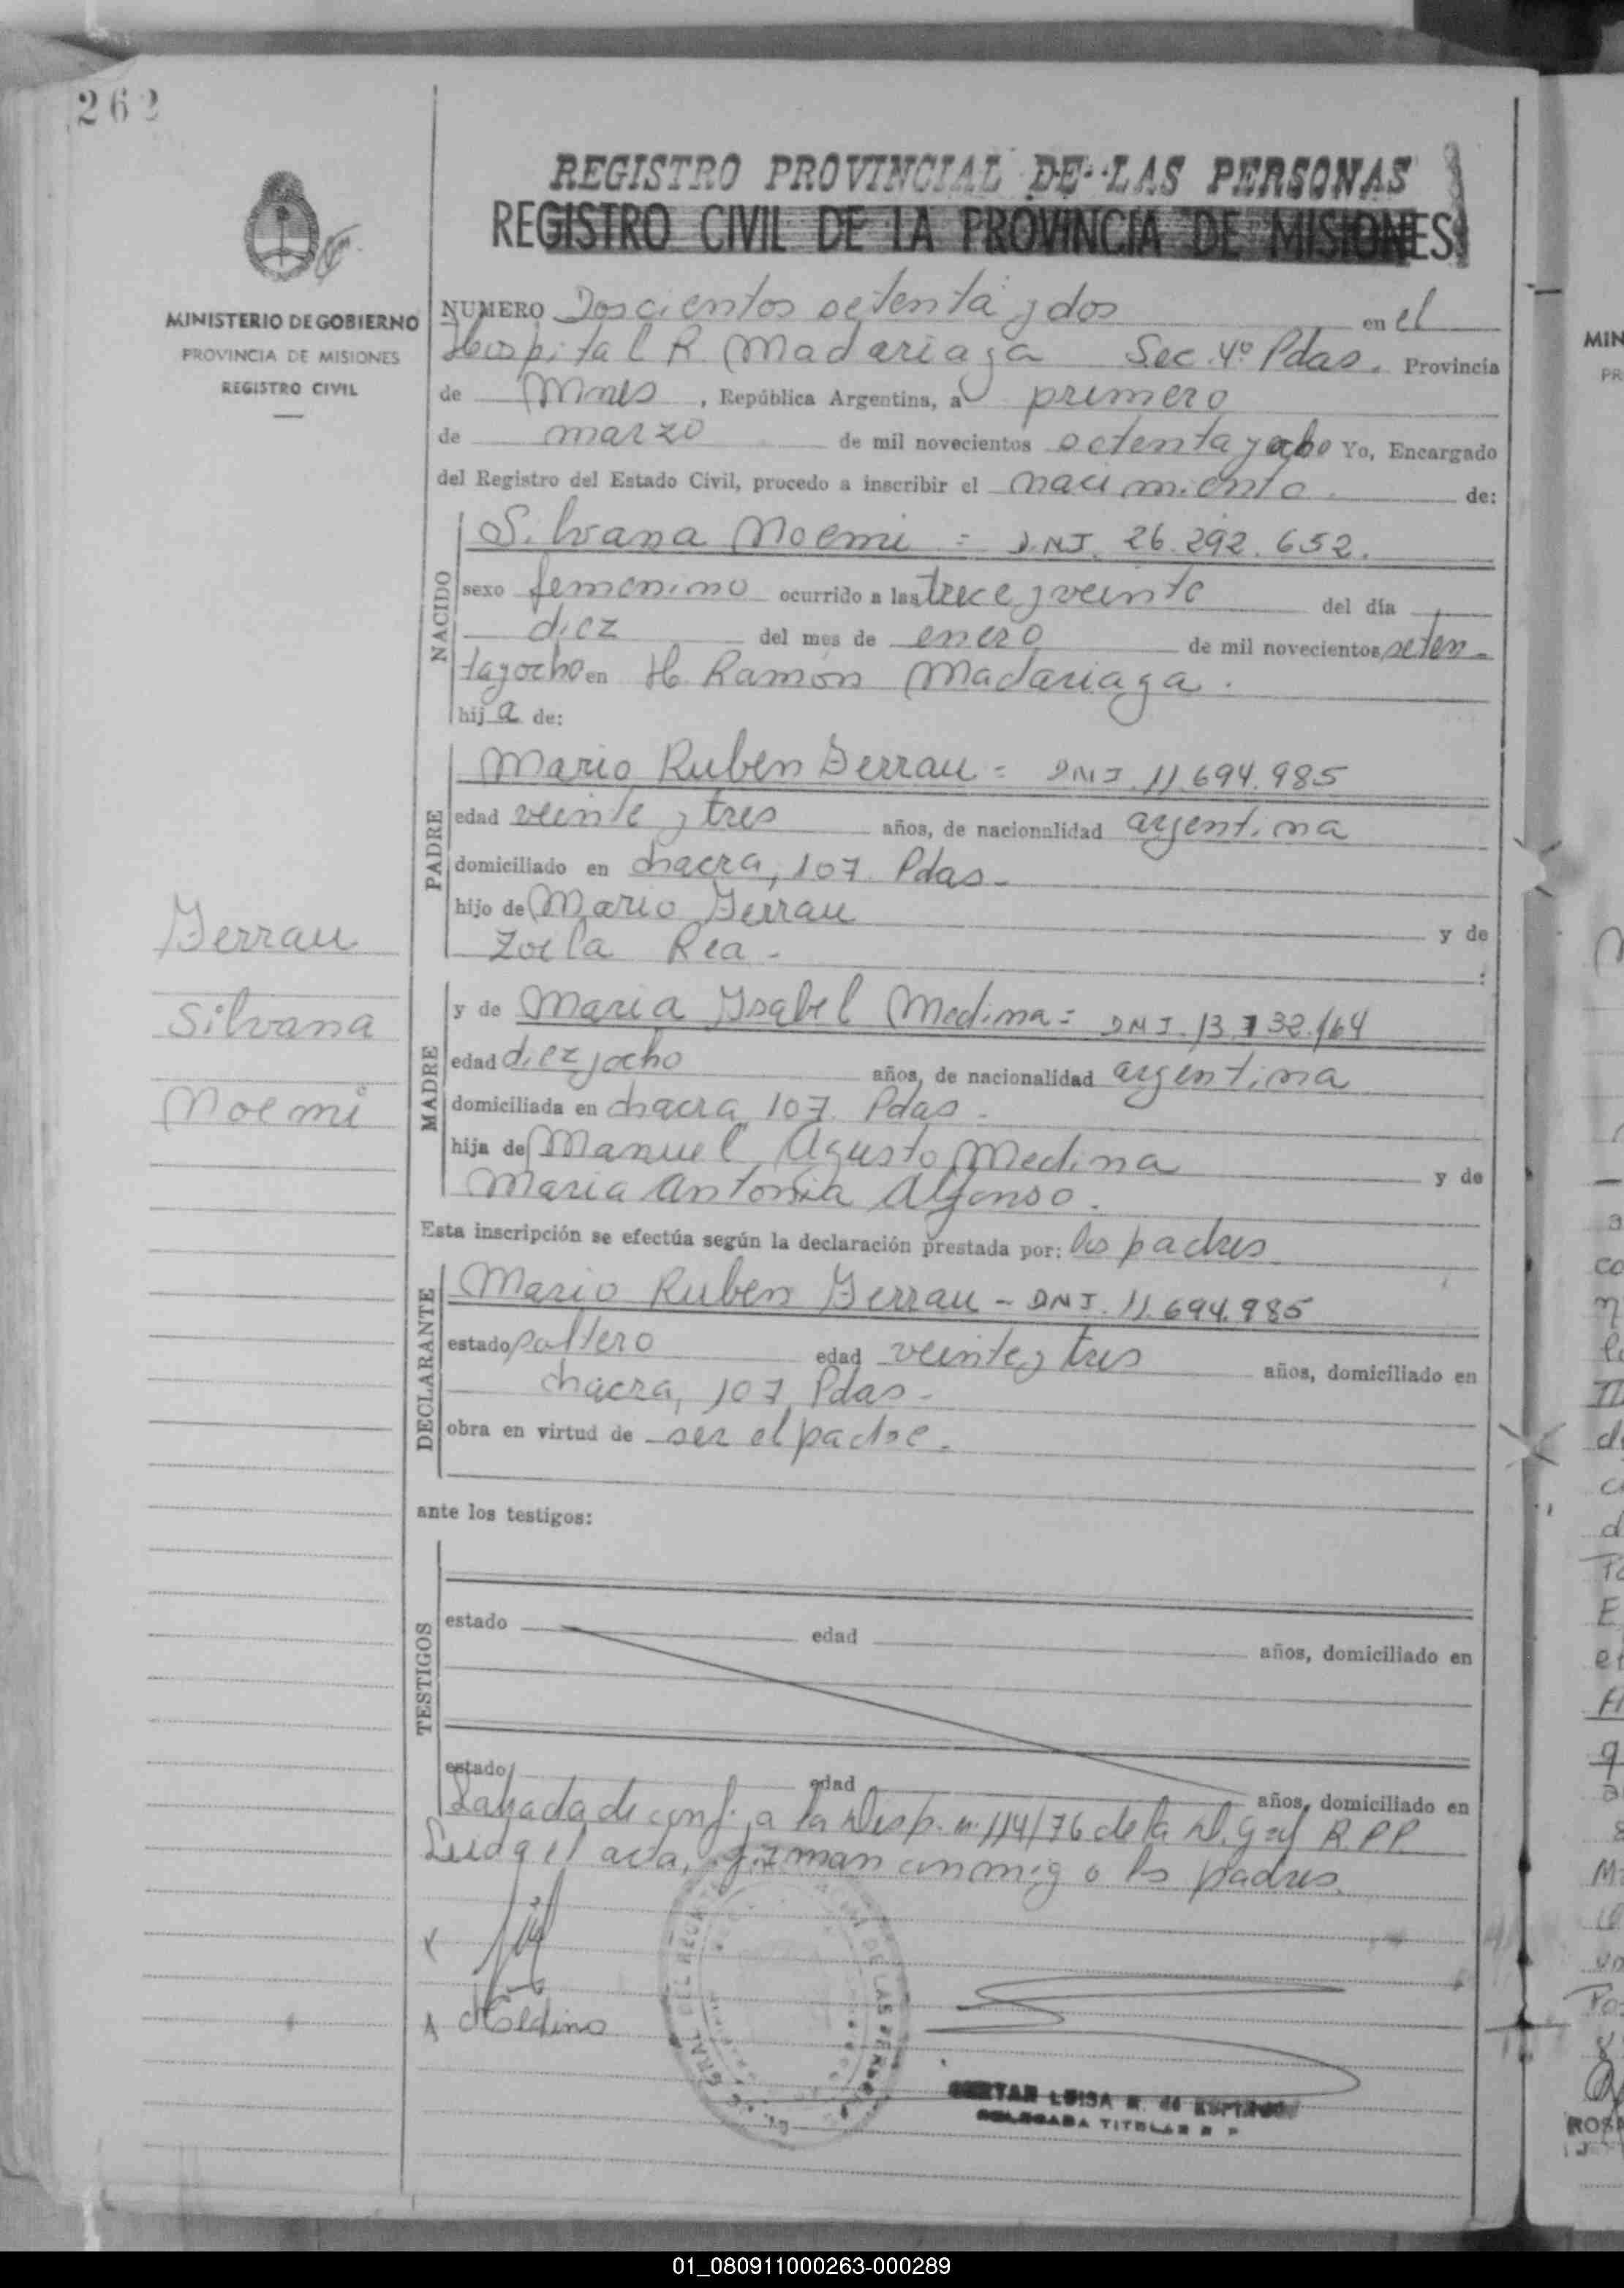 262
REGISTRO PROVINCIAL DE LAS PERSONAS
REGISTRO CIVIL DE LA PROVINCIA DE MISIONES
MINISTERIO DE GOBIERNO
PROVINCIA DE MISIONES
REGISTRO CIVIL
NUMERO Doscientos setenta y dos en el
Hospital R. Madariaga Sec. 4º Pdas. Provincia
de Mnes, República Argentina, a primero
de marzo de mil novecientos octenta y ocho Yo, Encargado
del Registro del Estado Civil, procedo a inscribir el nacimiento. de:
NACIDO
Silvana Noemi = DNI. 26.292.652.
sexo femenino ocurrido a las trece y veinte del día
diez del mes de enero de mil novecientos seten-
ta y ocho en H. Ramón Madariaga.
hija de:
PADRE
Mario Ruben Ferrau = DNI. 11.694.985
edad veinte y tres años, de nacionalidad argentina
domiciliado en chacra, 107 Pdas-
hijo de Mario Ferrau y de
Zoila Rea-
MADRE
y de Maria Ysabel Medina = DNI. 13.732.164
edad diez y ocho años, de nacionalidad argentina
domiciliada en chacra 107. Pdas-
hija de Manuel Agusto Medina y de
Maria Antonia Alfonso.
Ferrau
Silvana
Noemi
Esta inscripción se efectúa según la declaración prestada por: los padres
DECLARANTE
Mario Ruben Ferrau - DNI. 11.694.985
estado soltero edad veinte y tres años, domiciliado en
chacra, 107 Pdas-
obra en virtud de ser el padre.
ante los testigos:
TESTIGOS
estado edad años, domiciliado en
estado edad años, domiciliado en
de conf. a la Disp. n. 114/76 de la D. Gral R.P.P.
Leida el acta, firman conmigo los padres.
Medina
LUISA
TITULAR
01_080911000263-000289